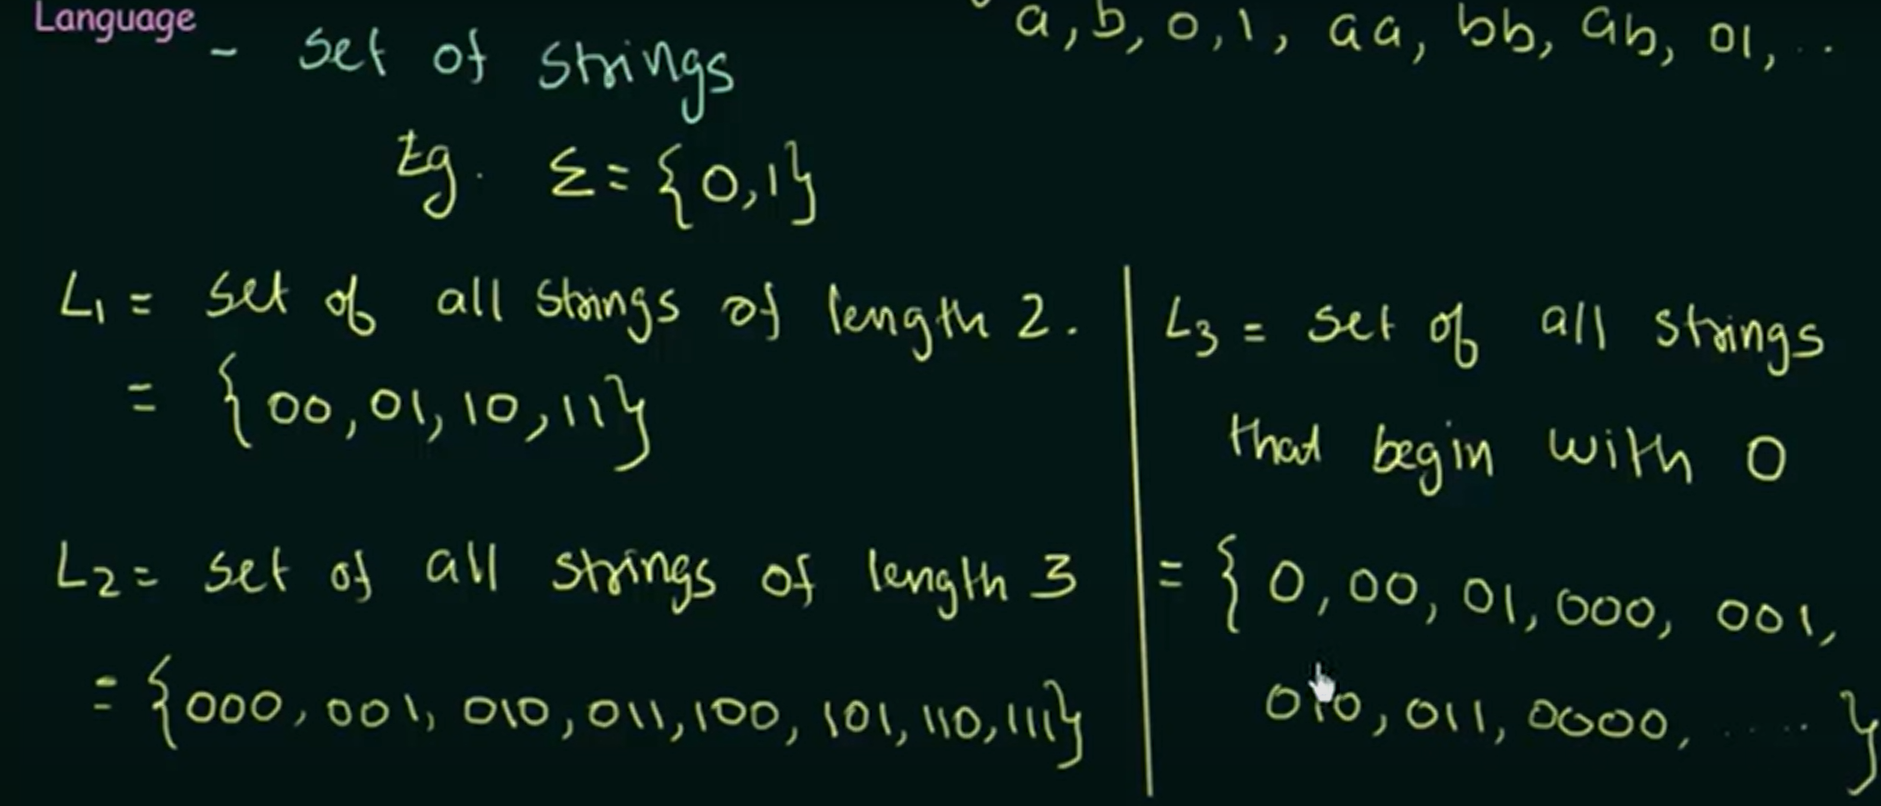 Language
- set of strings
a, b, 0, 1, aa, bb, ab, 01, ..
Eg. Σ = {0,1}
L1 = set of all strings of length 2.
= {00, 01, 10, 11}
L2 = set of all strings of length 3
= {000, 001, 010, 011, 100, 101, 110, 111}
L3 = set of all strings
that begin with 0
= {0, 00, 01, 000, 001,
010, 011, 0000, ..... }